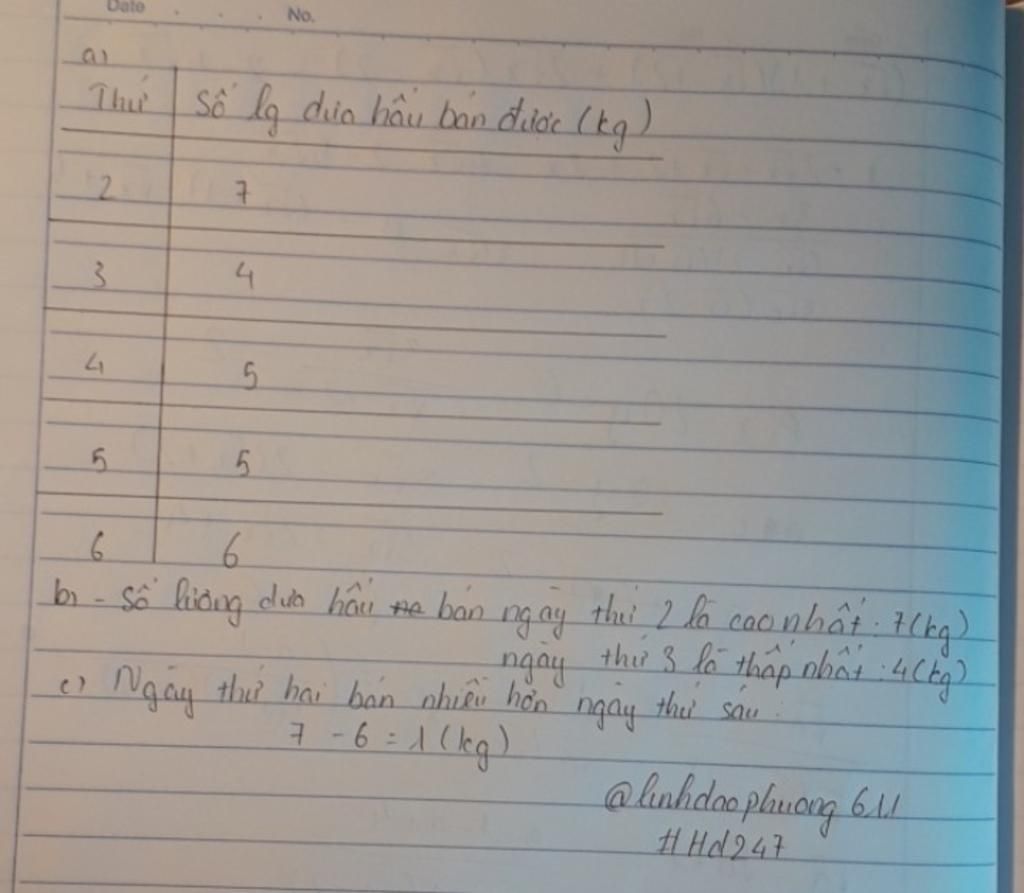 Date . . . No.
a)
Thứ Số lg dưa hấu bán được (kg)
2 7
3 4
4 5
5 5
6 6
b) - Số lượng dưa hấu bán ngày thứ 2 là cao nhất : 7(kg)
ngày thứ 3 là thấp nhất : 4(kg)
c) Ngày thứ hai bán nhiều hơn ngày thứ sáu :
7 - 6 = 1 (kg)
@linhdaophuong611
#Hd247